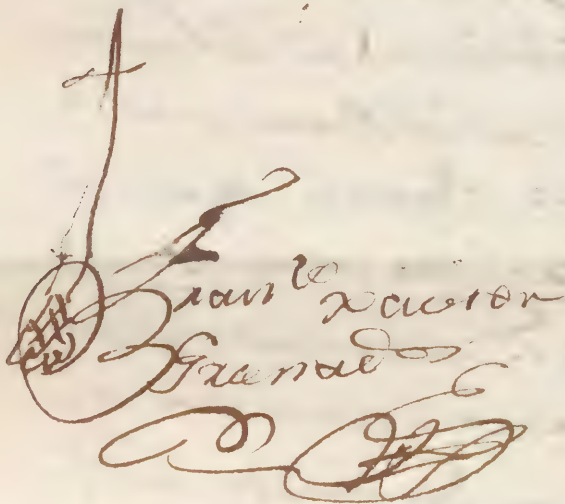 Fran^co Xavier
Granado